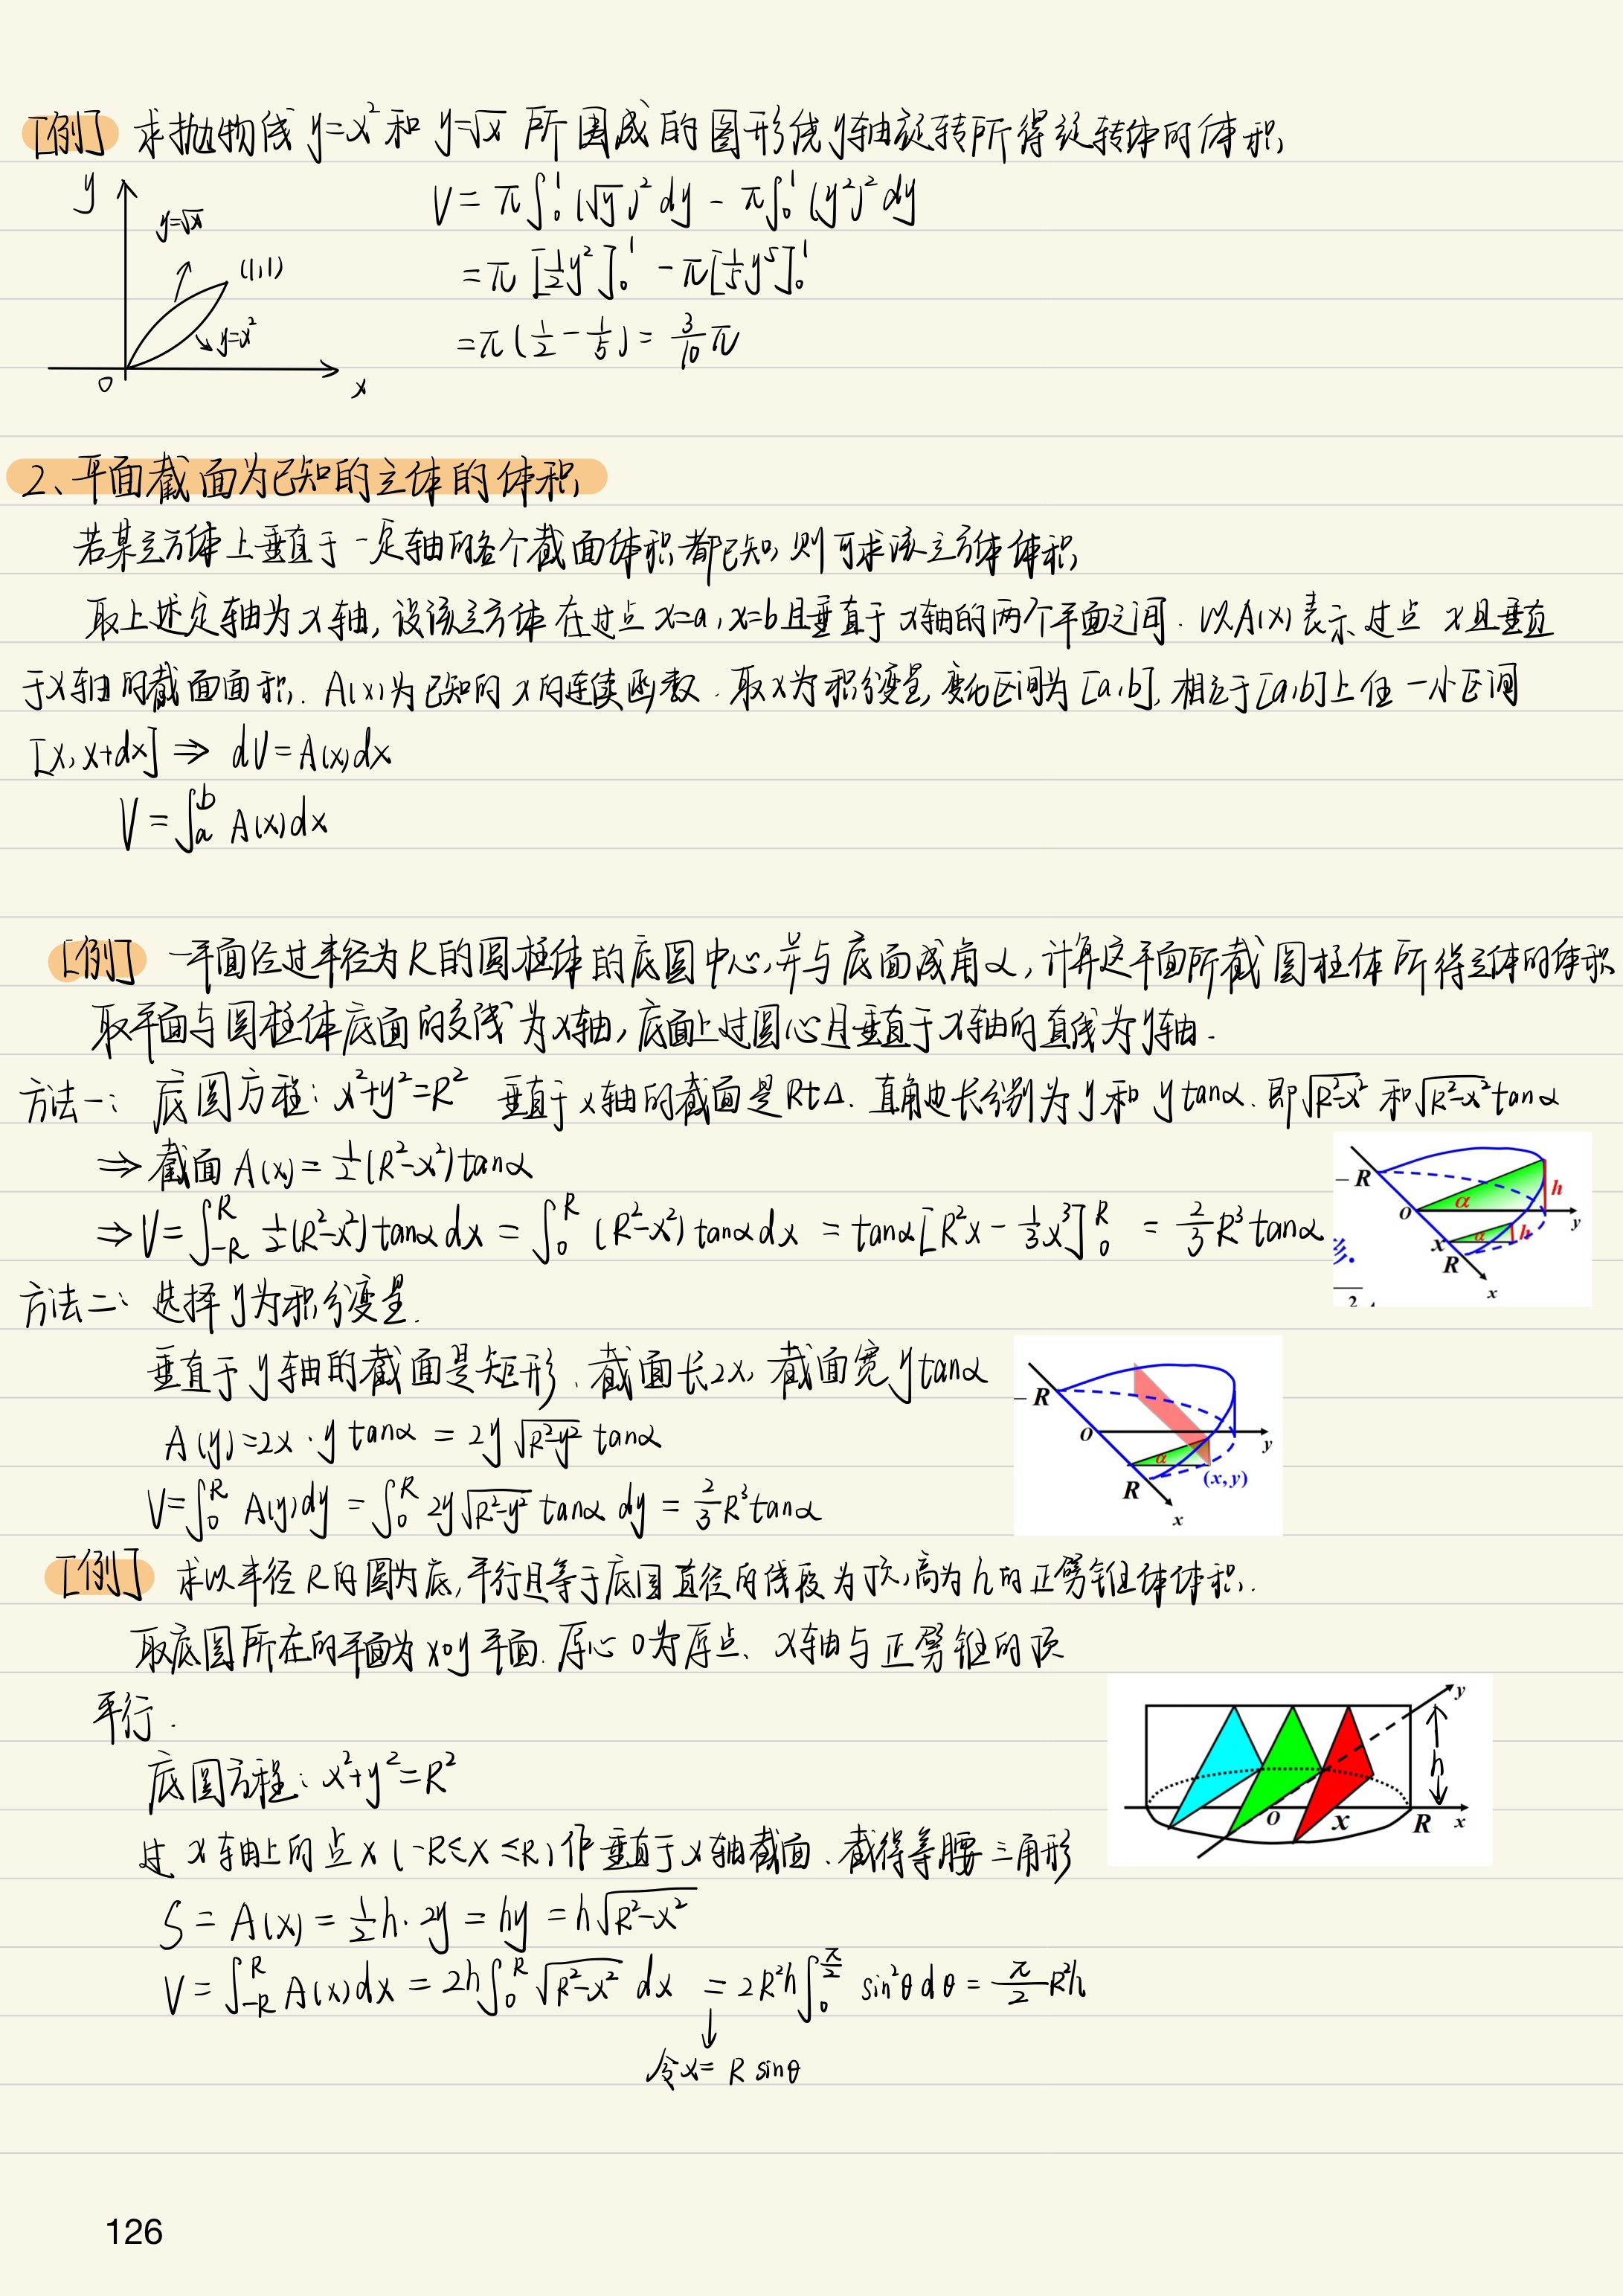 [例] 求抛物线 y=x² 和 y=√x 所围成的图形绕y轴旋转所得旋转体的体积
y
y=√x
(1,1)
y=x²
O
x
V = π∫₀¹ (√y)² dy - π∫₀¹ (y²)² dy
= π [½y²]₀¹ - π[⅕y⁵]₀¹
= π (½ - ⅕) = 3/10 π
2、平面截面为已知的立体的体积
若某立方体上垂直于一定轴的各个截面体积都已知, 则可求该立方体体积
取上述定轴为x轴, 设该立方体在过点 x=a, x=b且垂直于x轴的两个平面之间. 以A(x)表示过点 x且垂直
于x轴的截面面积. A(x)为已知的x的连续函数. 取x为积分变量, 变化区间为[a,b], 相应于[a,b]上任一小区间
[x, x+dx] ⇒ dV = A(x)dx
V = ∫ₐᵇ A(x)dx
[例] 一平面经过半径为R的圆柱体的底圆中心, 并与底面成角α, 计算这平面所截圆柱体所得立体的体积
取平面与圆柱体底面的交线为x轴, 底面上过圆心且垂直于x轴的直线为y轴.
方法一: 底圆方程: x²+y²=R² 垂直于x轴的截面是Rt△. 直角边长分别为y和 y tanα. 即√(R²-x²) 和√(R²-x²) tanα
⇒ 截面 A(x) = ½(R²-x²)tanα
⇒ V = ∫₋ᴿᴿ ½(R²-x²)tanα dx = ∫₀ᴿ (R²-x²) tanα dx = tanα[R²x - ⅓x³]₀ᴿ = ⅔R³tanα
-R
O
α
h
y
x
α
h
R
x
形.
2
方法二: 选择y为积分变量.
垂直于y轴的截面是矩形. 截面长2x, 截面宽ytanα
A(y) = 2x · y tanα = 2y √(R²-y²) tanα
V = ∫₀ᴿ A(y)dy = ∫₀ᴿ 2y√(R²-y²) tanα dy = ⅔R³tanα
-R
O
y
α
R
(x,y)
x
[例] 求以半径R的圆为底, 平行且等于底圆直径的线段为顶, 高为h的正劈锥体体积.
取底圆所在的平面为xoy平面. 原心O为原点、x轴与正劈锥的顶
平行.
底圆方程: x²+y²=R²
过x轴上的点x (-R≤x≤R) 作垂直于x轴截面、截得等腰三角形
S = A(x) = ½h · 2y = hy = h√(R²-x²)
V = ∫₋ᴿᴿ A(x)dx = 2h∫₀ᴿ √(R²-x²) dx = 2R²h∫₀^(π/2) sin²θ dθ = π/2 R²h
↓
令x = R sinθ
y
h
O
x
R
x
126